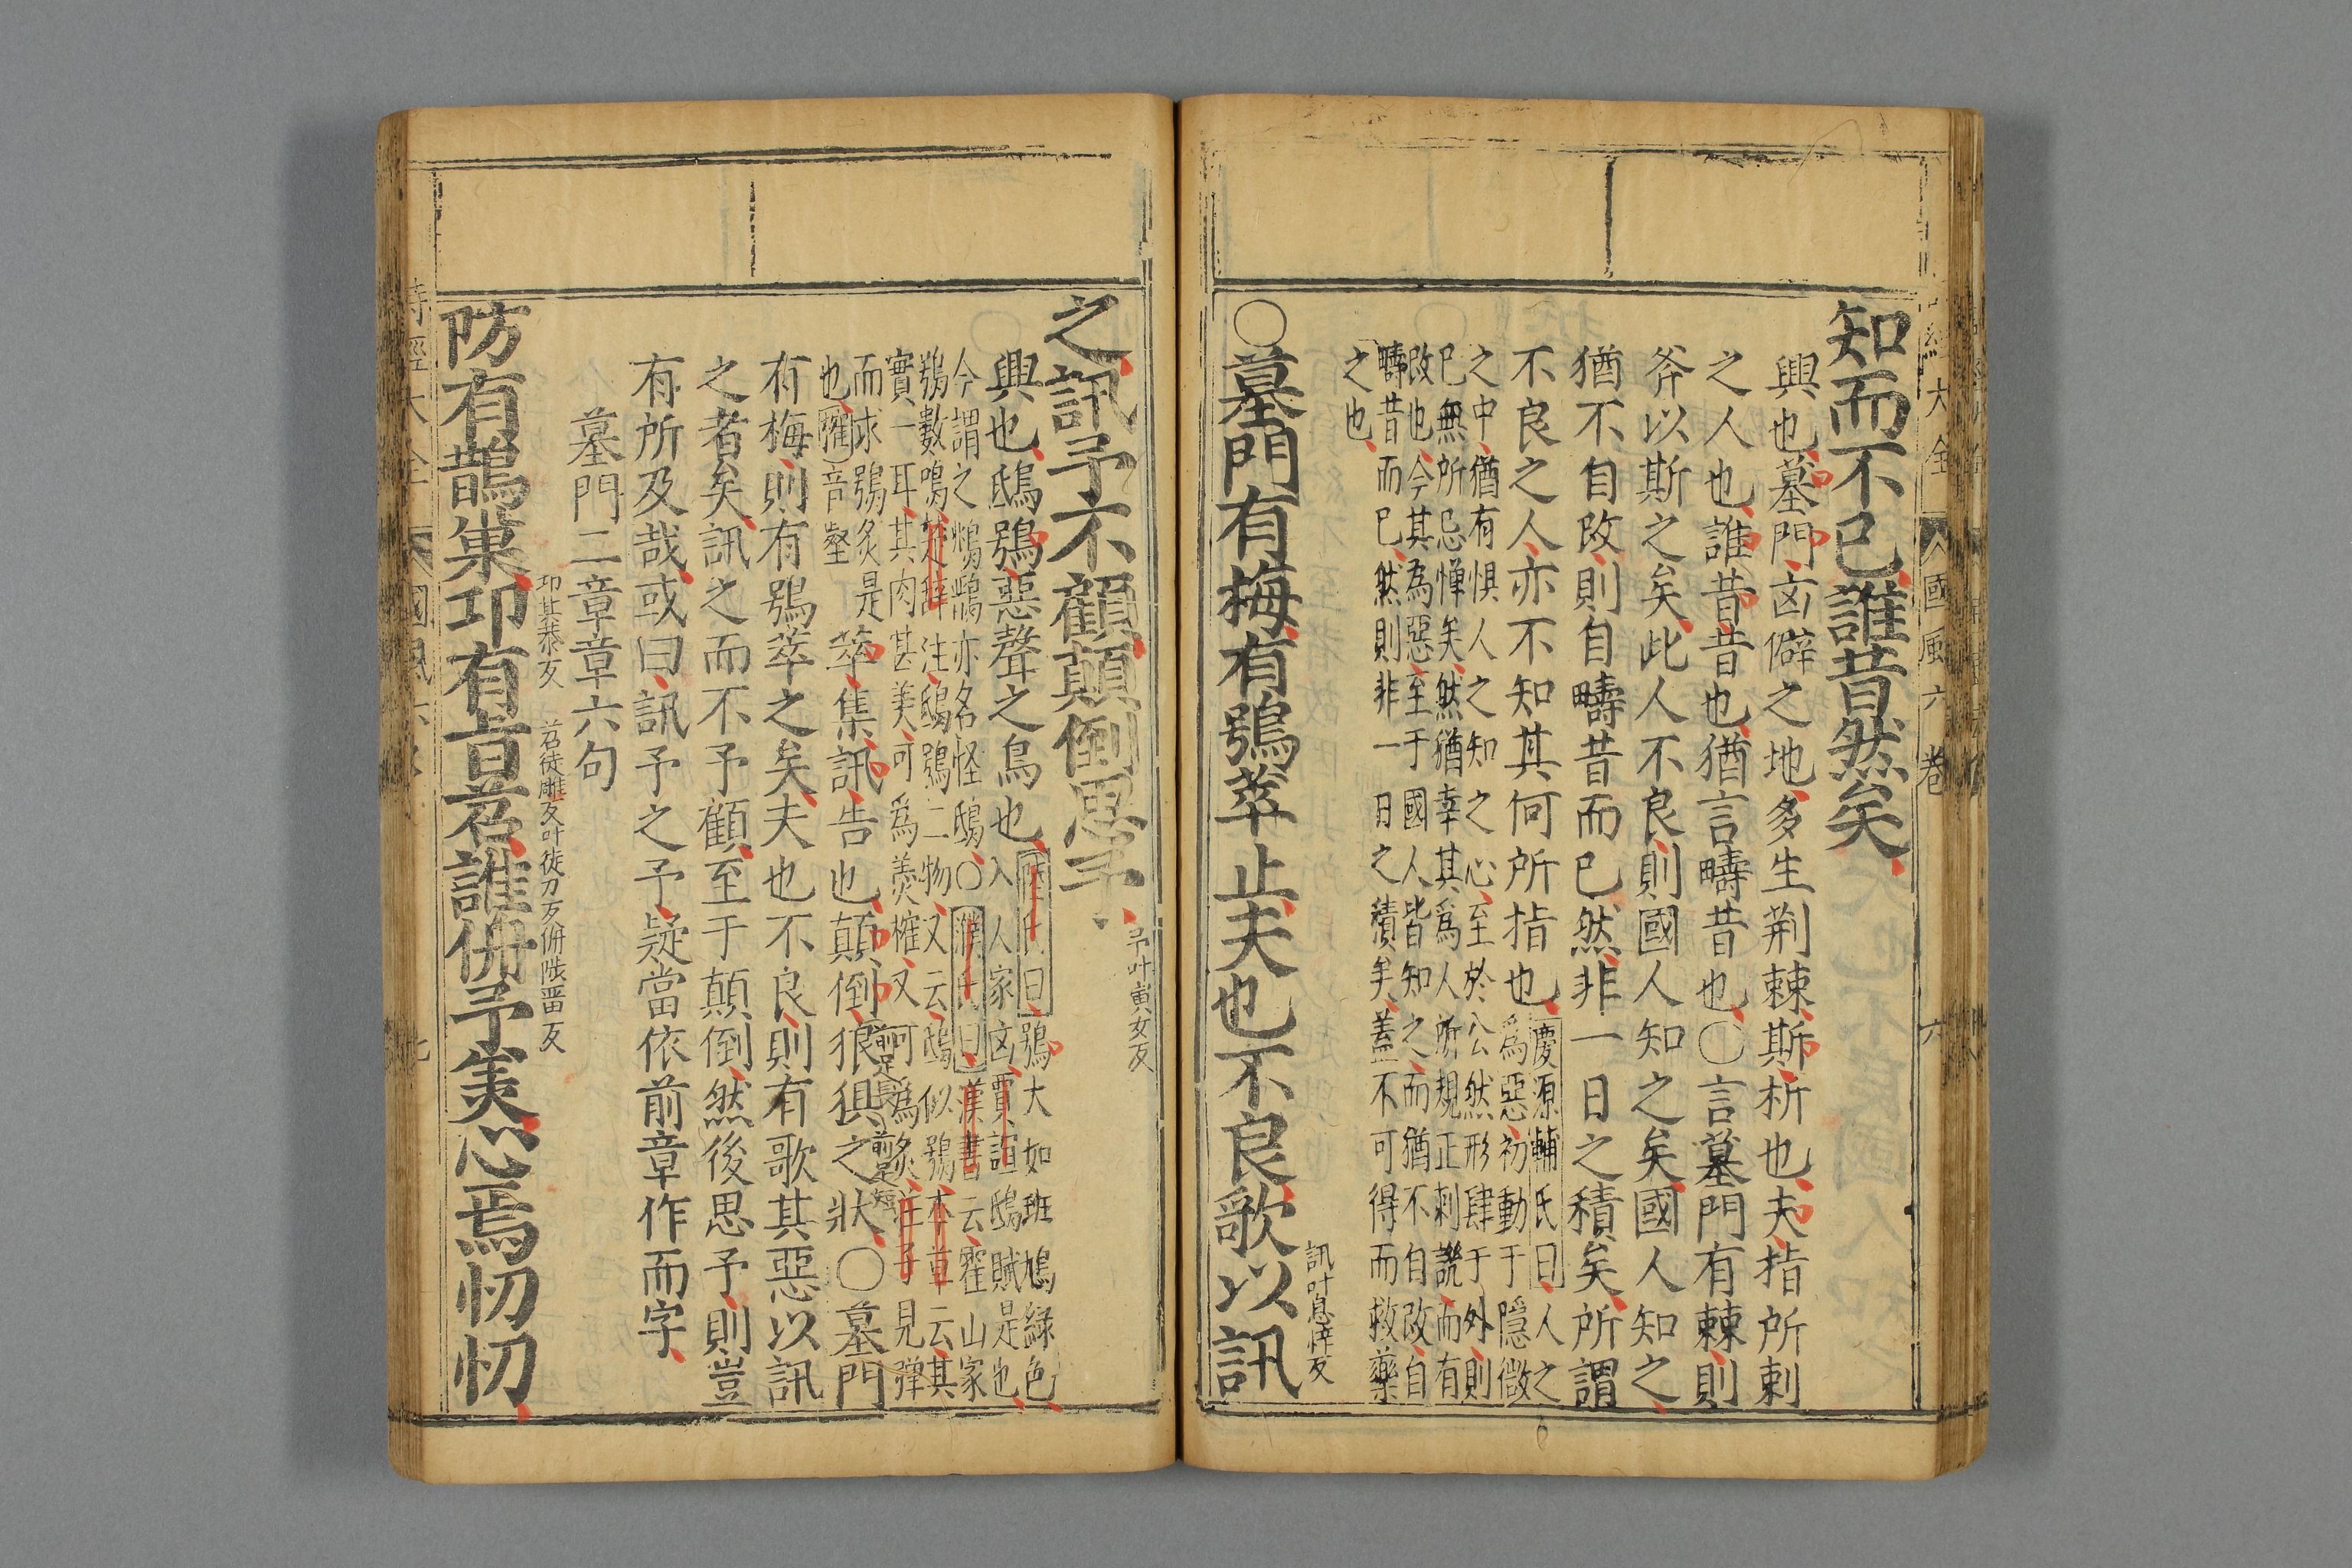 知而不已誰昔然矣
興也墓門凶僻之地多生荆棘斯析也夫指所刺
之人也誰昔昔也猶言疇昔也○言墓門有棘則
斧以斯之矣此人不良則國人知之矣國人知之
猶不自改則自疇昔而已然非一日之積矣所謂
不良之人亦不知其何所指也慶源輔氏曰人之
為惡初動于隱微
之中猶有惧人之知之心至於公然形肆于外則
已無所忌憚矣然猶幸其爲人所規正刺譏而有
改也今其為惡至于國人皆知之而猶不自改自
疇昔而已然則非一日之積矣蓋不可得而救藥
之也
訊叶息悴反
○墓門有梅有鴞萃止夫也不良歌以訊
國風六卷
六
之訊予不顧顛倒思予
予叶寅女反
興也鴟鴞惡聲之鳥也
陸氏曰鴞大如班鳩綠色
入人家凶賈誼鵩賦是也
濮氏曰漢書云霍山家
鴞數鳴楚辭注鴟鴞二物又云鴟似鴞本草云其
實一耳其肉甚美可爲羹臛又可爲炙莊子見彈
而求鴞炙是
也臛音壑
萃集訊告也顛倒狼狽之狀○墓門
前足長
前足短
有梅則有鴞萃之矣夫也不良則有歌其惡以訊
之者矣訊之而不予顧至于顛倒然後思予則豈
有所及哉或曰訊予之予疑當依前章作而字
墓門二章章六句
卭其恭反
苕徒雕反叶徒刀反侜陟畱反
防有鵲巢卭有旨苕誰侜予美心焉忉忉